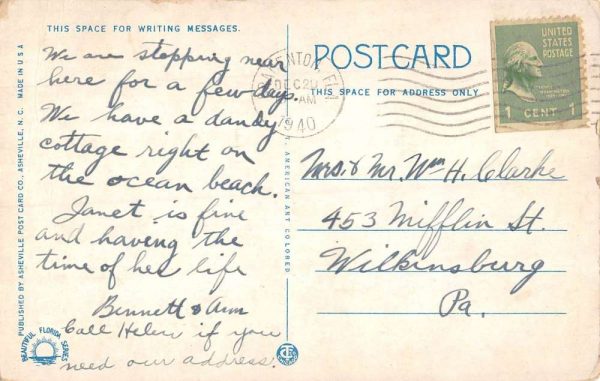 THIS SPACE FOR WRITING MESSAGES.
We are stopping near
here for a few days.
We have a dandy
cottage right on
the ocean beach.
Janet is fine
and haveng the
time of her life
Bennett & Ann
Call Helen if you
need our address.
BEAUTIFUL FLORIDA SERIES
PUBLISHED BY ASHEVILLE POST CARD CO., ASHEVILLE, N. C. MADE IN U S A
AMERICAN ART COLORED
POSTCARD
THIS SPACE FOR ADDRESS ONLY.
DEC 20
AM
1940
UNITED
STATES
POSTAGE
1 CENT 1
Mrs. & Mr. Wm H. Clarke
453 Mifflin St.
Wilkinsburg
Pa.